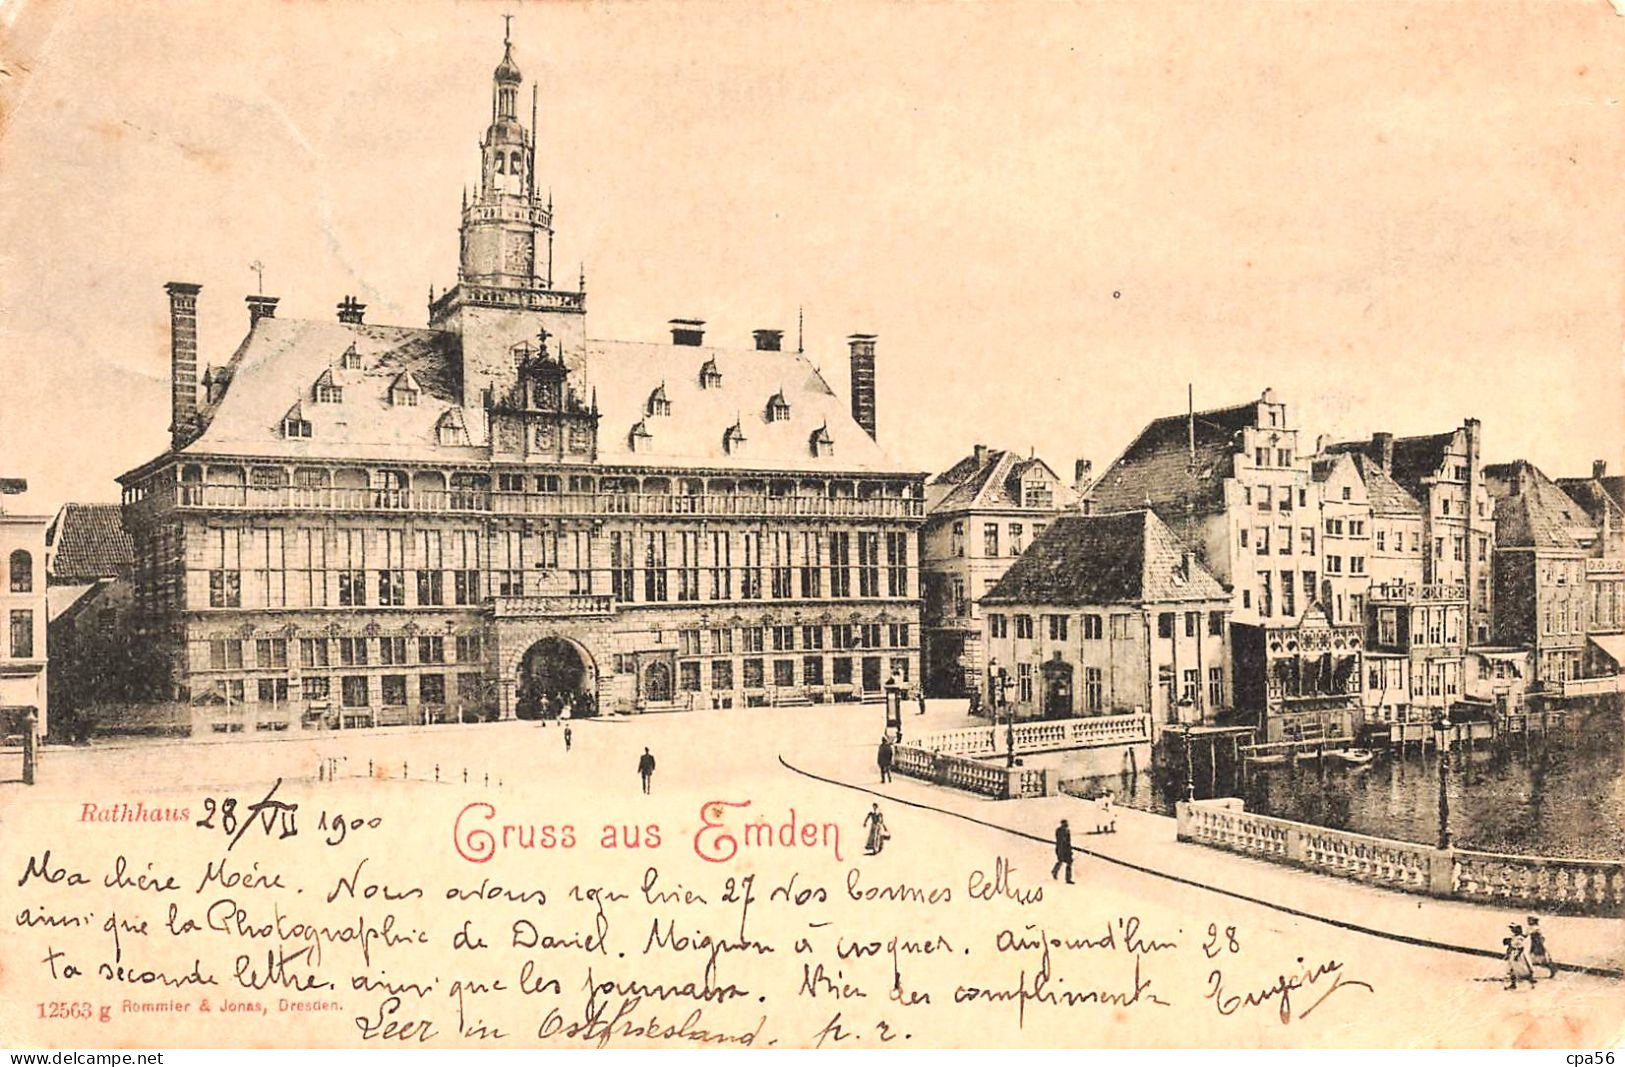 Rathhaus 28/VII 1900
Gruss aus Emden
Ma chère Mère. Nous avons reçu hier 27 vos bonnes lettres
ainsi que la Photographie de Daniel. Mignon à croquer. Aujourd'hui 28
ta seconde lettre. ainsi que les journaux. Bien des compliments Eugène
12563 g Rommler & Jonas, Dresden.
Leer in Ostfriesland. p. r.
cpa56